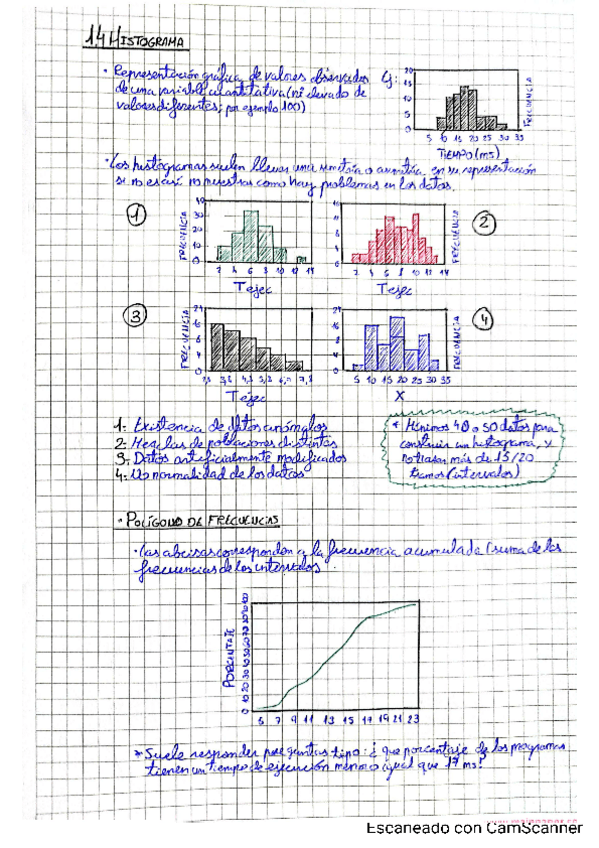 1.4 HISTOGRAMA
· Representación gráfica de valores observados
de una variable cuantitativa (nº elevado de
valores diferentes; por ejemplo 100)
Ej:
20
15
10
5
0
FRECUENCIA
5 10 15 20 25 30 35
TIEMPO (ms)
· Los histogramas suelen llevar una simetría o asimetría, en su representación
si no es así nos muestra como hay problemas en los datos.
1
FRECUENCIA
40
30
20
10
0
2 4 6 8 10 12 14
Tejec
2
FRECUENCIA
2 4 6 8 10 12 14
Tejec
3
FRECUENCIA
24
Tejec
4
FRECUENCIA
24
5 10 15 20 25 30 35
X
1- Existencia de datos anómalos
2- Mezclas de poblaciones distintas
3- Datos artificialmente modificados
4- No normalidad de los datos
* Mínimos 40 o 50 datos para
construir un histograma, y
no trazar más de 15/20
tramos (intervalos)
· POLÍGONO DE FRECUENCIAS
· Las abcisas corresponden a la frecuencia acumulada (suma de las
frecuencias de los intervalos
PORCENTAJE
0 10 20 30 40 50 60 70 80 90 100
5 7 9 11 13 15 17 19 21 23
* Suele responder preguntas tipo: ¿que porcentaje de los programas
tienen un tiempo de ejecución menor o igual que 17 ms?
Escaneado con CamScanner